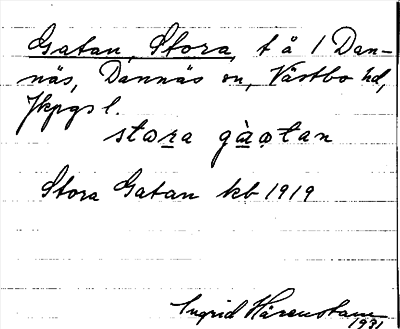 Gatan, Stora, t å 1 Dan-
näs, Dannäs sn, Västbo hd,
Jkpgs l.
stora gàatan
Stora Gatan kb 1919
Ingrid Härenstam
1931